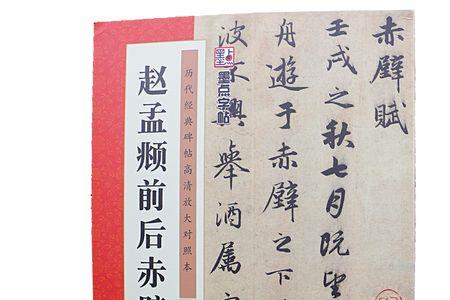 赵孟𫖯前后赤壁
历代经典碑帖高清放大对照本
墨点字帖
赤壁賦
壬戌之秋七月既望
舟遊于赤壁之下
波不興舉酒屬